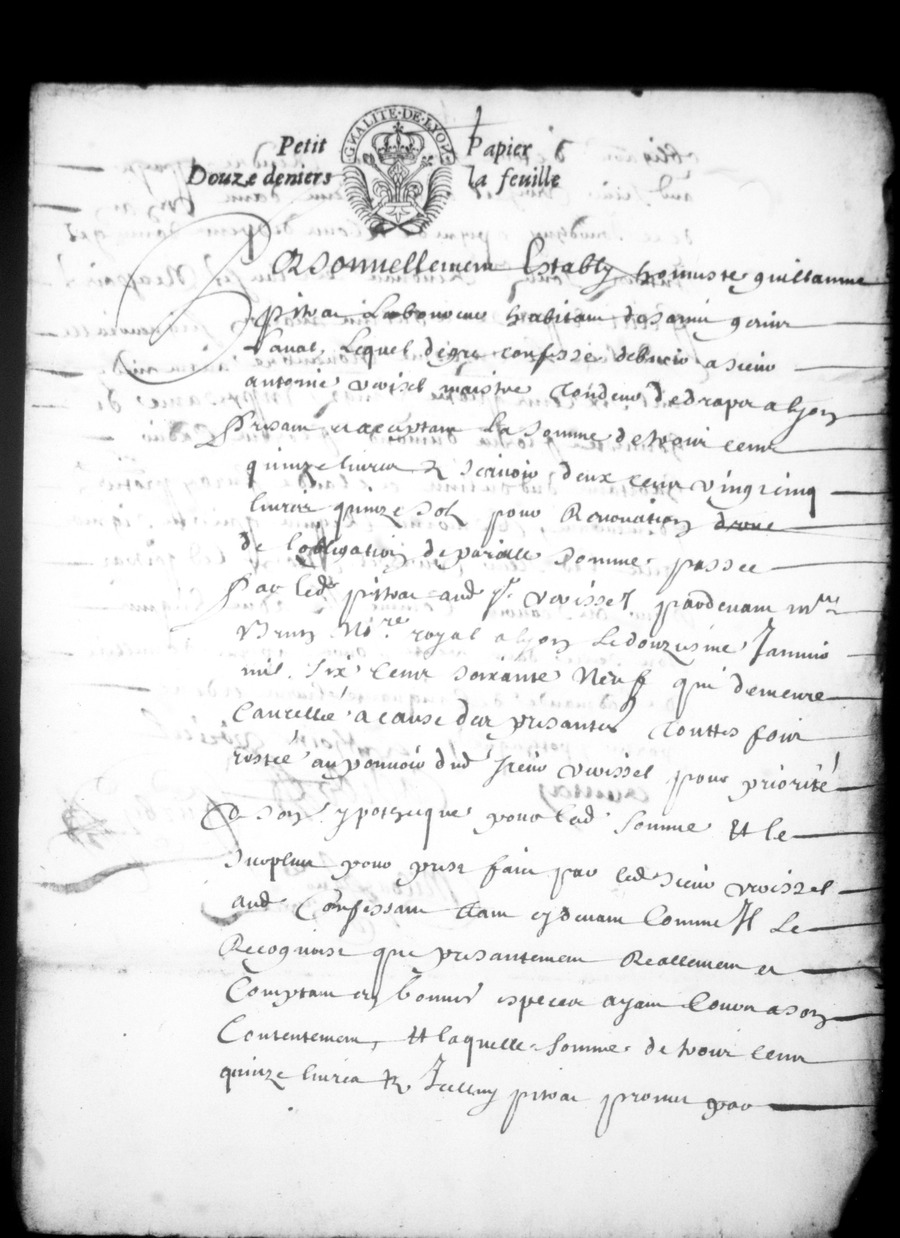 GNALITE·DE·LYON
Petit Papier
Douze deniers la feuille
Personnellement Estably honneste guillaume
pitra Laboureur habitant de
Laval, Lequel de gre confesse debvoir a sieur
antoine voissel maistre tondeur de draps a lyon
presant et acceptant La somme de trois cent
quinze livres Et scavoir deux cent vingt cinq
livres quinze solz pour Renovation
de lobligation de pareille somme passee
Par led pitra aud sr voissel pardevant me
Brun No.re royal a lyon Le douziesme Janvier
mil six cent soixante Neuf qui demeure
Cancellée a cause des presantes touttes fois
restée au pouvoir dud sieur voissel pour priorité
de son ypothecque pour lad somme Et le
surplus pour prest faict par led sieur voissel
aud Confessant tant cydevant Comme Il Le
Recognoist que presantement Reallement et
Comptant en bonnes especes ayant Cours a son
Contentement, Et laquelle somme de trois cent
quinze livres Et Icelluy pitra promet